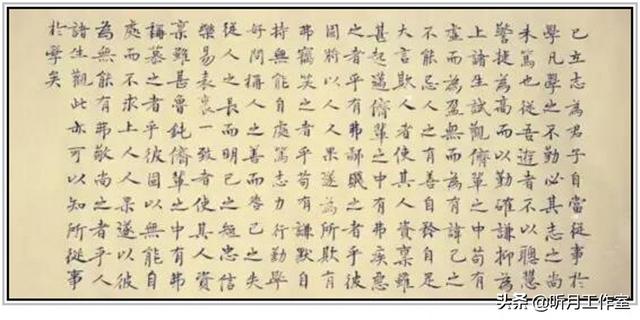 已立志為君子自當從事於
學凡學之不勤必其志之尚
未篤也從吾遊者不以聰慧
警捷為高而以勤確謙抑為
上諸生試觀儕輩之中苟有
虛而為盈無而為有諱己之
不能忌人之有善自矜自足
大言欺人者使其人資稟雖
甚超邁儕輩之中有弗疾惡
之者乎有弗鄙賤之者乎彼
固將以人人果遂為所欺有
弗竊笑之者乎苟有謙默自
持無能自處篤志力行勤學
好問稱人之善而咎己之失
從人之長而明己之短忠信
樂易表裏一致者使其人資
稟雖善魯鈍儕輩之中有弗
稱慕之者乎彼固以無能自
處而不求上人人果遂以彼
為無能有弗敬尚之者乎人
諸生觀此亦可以知所從事
於學矣
头条 @听月工作室